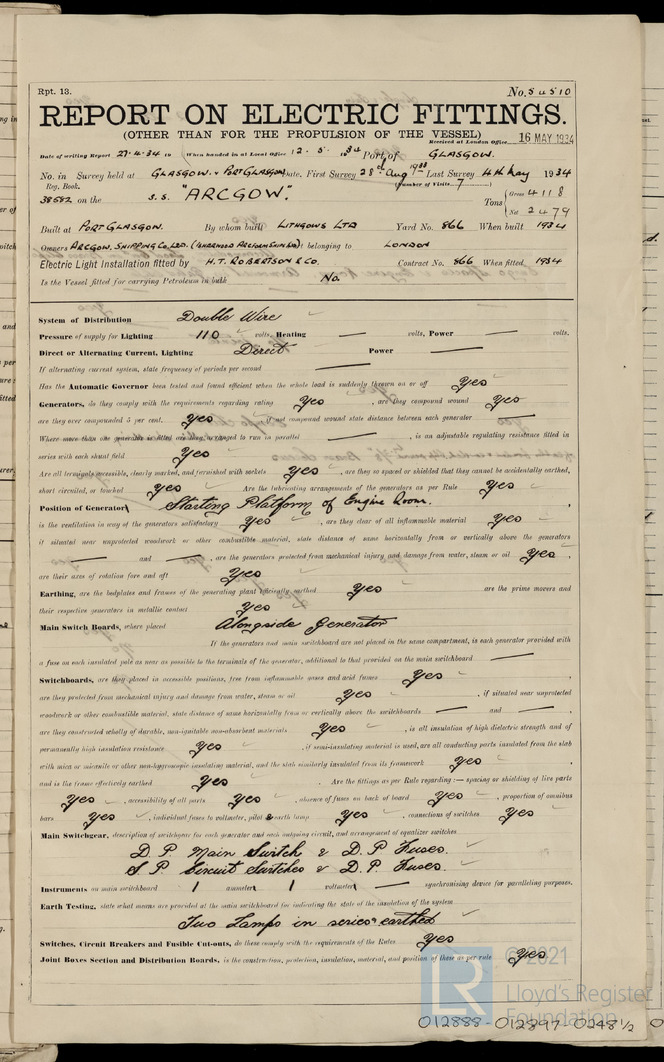 Rpt. 13.
No. 54510
REPORT ON ELECTRIC FITTINGS.
(OTHER THAN FOR THE PROPULSION OF THE VESSEL)
Received at London Office 16 MAY 1934
Date of writing Report 27.4.34 19 When handed in at Local Office 12.5.1934 Port of GLASGOW.
No. in Survey held at GLASGOW. & PORT GLASGOW Date, First Survey 28th Aug 1933 Last Survey 4th May 1934
Reg. Book. (Number of Visits 7)
38582 on the S.S. "ARCGOW." Tons { Gross 4118
Net 2479
Built at PORT GLASGOW. By whom built LITHGOWS LTD Yard No. 866 When built 1934
Owners ARCGOW. SHIPPING CO. LTD. belonging to LONDON
Electric Light Installation fitted by H.T. ROBERTSON & CO. Contract No. 866 When fitted 1934
Is the Vessel fitted for carrying Petroleum in bulk No.
System of Distribution Double Wire
Pressure of supply for Lighting 110 volts, Heating — volts, Power — volts.
Direct or Alternating Current, Lighting Direct Power —
If alternating current system, state frequency of periods per second —
Has the Automatic Governor been tested and found efficient when the whole load is suddenly thrown on or off Yes
Generators, do they comply with the requirements regarding rating Yes, are they compound wound Yes
are they over compounded 5 per cent. Yes, if not compound wound state distance between each generator —
Where more than one generator is fitted are they arranged to run in parallel —, is an adjustable regulating resistance fitted in
series with each shunt field Yes
Are all terminals accessible, clearly marked, and furnished with sockets Yes, are they so spaced or shielded that they cannot be accidentally earthed,
short circuited, or touched Yes Are the lubricating arrangements of the generators as per Rule Yes
Position of Generators Starting Platform of Engine Room.
is the ventilation in way of the generators satisfactory Yes, are they clear of all inflammable material Yes
if situated near unprotected woodwork or other combustible material, state distance of same horizontally from or vertically above the generators
— and —, are the generators protected from mechanical injury and damage from water, steam or oil Yes,
are their axes of rotation fore and aft Yes
Earthing, are the bedplates and frames of the generating plant efficiently earthed Yes are the prime movers and
their respective generators in metallic contact Yes
Main Switch Boards, where placed Alongside Generator
If the generators and main switchboard are not placed in the same compartment, is each generator provided with
a fuse on each insulated pole as near as possible to the terminals of the generator, additional to that provided on the main switchboard —
Switchboards, are they placed in accessible positions, free from inflammable gases and acid fumes Yes,
are they protected from mechanical injury and damage from water, steam or oil Yes, if situated near unprotected
woodwork or other combustible material, state distance of same horizontally from or vertically above the switchboards — and —,
are they constructed wholly of durable, non-ignitable non-absorbent materials Yes, is all insulation of high dielectric strength and of
permanently high insulation resistance Yes, if semi-insulating material is used, are all conducting parts insulated from the slab
with mica or micanite or other non-hygroscopic insulating material, and the slab similarly insulated from its framework Yes,
and is the frame effectively earthed Yes. Are the fittings as per Rule regarding:— spacing or shielding of live parts
Yes, accessibility of all parts Yes, absence of fuses on back of board Yes, proportion of omnibus
bars Yes, individual fuses to voltmeter, pilot & earth lamp Yes, connections of switches Yes
Main Switchgear, description of switchgear for each generator and each outgoing circuit, and arrangement of equaliser switches
D. P. Main Switch & D. P. Fuses.
S. P. Circuit Switches & D. P. Fuses.
Instruments on main switchboard 1 ammeters 1 voltmeters — synchronising device for paralleling purposes.
Earth Testing, state what means are provided at the main switchboard for indicating the state of the insulation of the system
Two Lamps in series earthed
Switches, Circuit Breakers and Fusible Cut-outs, do these comply with the requirements of the Rules Yes
Joint Boxes Section and Distribution Boards, is the construction, protection, insulation, material, and position of these as per rule Yes
© 2021
LR
Lloyd's Register
Foundation
012888-012897-0248 1/2